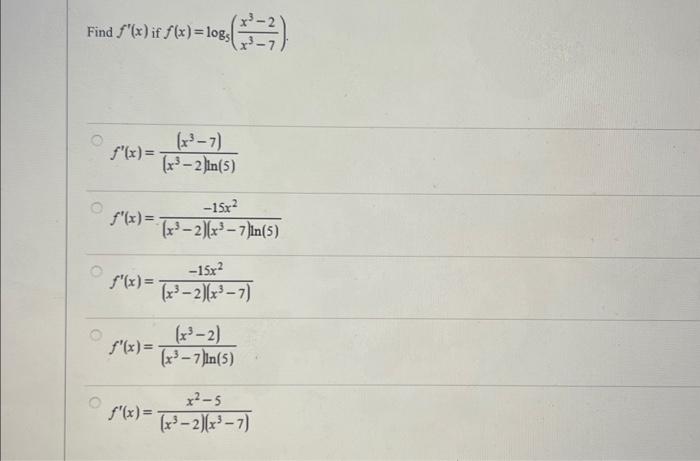 Find f'(x) if f(x) = log₅((x³ − 2)/(x³ − 7)).
f'(x) = (x³ − 7)/((x³ − 2)ln(5))
f'(x) = −15x²/((x³ − 2)(x³ − 7)ln(5))
f'(x) = −15x²/((x³ − 2)(x³ − 7))
f'(x) = (x³ − 2)/((x³ − 7)ln(5))
f'(x) = (x² − 5)/((x³ − 2)(x³ − 7))